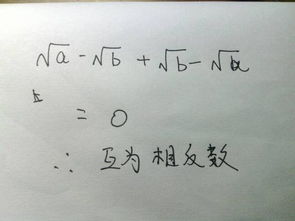 √a - √b + √b - √a
= 0
∴ 互为相反数